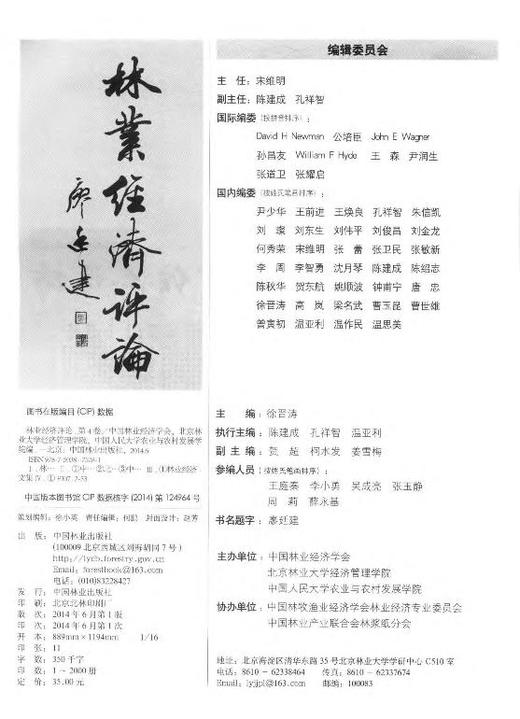 林業经濟评論
廖廷建
图书在版编目(CIP)数据
林业经济评论. 第4卷/中国林业经济学会, 北京林
业大学经济管理学院, 中国人民大学农业与农村发展学
院编. —北京: 中国林业出版社, 2014.6
中国版本图书馆CIP数据核字(2014)第124964号
策划编辑: 徐小英 责任编辑: 何鹏 封面设计: 赵芳
出 版: 中国林业出版社
(100009 北京西城区刘海胡同7号)
http://lycb.forestry.gov.cn
Email: forestbook@163.com
电话: (010)83228427
发 行: 中国林业出版社
印 刷: 北京北林印刷厂
版 次: 2014年6月第1版
印 次: 2014年6月第1次
开 本: 889mm×1194mm 1/16
印 张: 11
字 数: 350千字
印 数: 1～2000册
定 价: 35.00元
编辑委员会
主 任: 宋维明
副主任: 陈建成 孔祥智
国际编委(按拼音排序):
David H Newman 公培臣 John E Wagner
孙昌友 William F Hyde 王 森 尹润生
张道卫 张耀启
国内编委(按姓氏笔画排序):
尹少华 王前进 王焕良 孔祥智 朱信凯
刘 璨 刘东生 刘伟平 刘俊昌 刘金龙
何秀荣 宋维明 张 蕾 张卫民 张敏新
李 周 李智勇 沈月琴 陈建成 陈绍志
陈秋华 贺东航 姚顺波 钟甫宁 唐 忠
徐晋涛 高 岚 梁名武 曹玉昆 曹世雄
曾寅初 温亚利 温作民 温思美
主 编: 徐晋涛
执行主编: 陈建成 孔祥智 温亚利
副 主 编: 贺 超 柯水发 姜雪梅
参编人员(按姓氏笔画排序):
王庭秦 李小勇 吴成亮 张玉静
周 莉 薛永基
书名题字: 廖廷建
主办单位: 中国林业经济学会
北京林业大学经济管理学院
中国人民大学农业与农村发展学院
协办单位: 中国林牧渔业经济学会林业经济专业委员会
中国林业产业联合会林浆纸分会
地址: 北京海淀区清华东路35号北京林业大学学研中心C510室
电话: 8610－62338464 传真: 8610－62337674
Email: lyjjpl@163.com 邮编: 100083